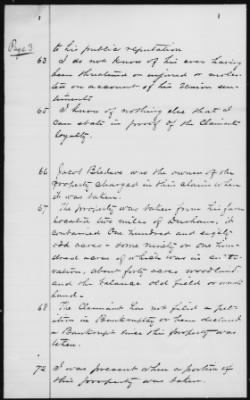 Page 3
to his public reputation
63 I do not know of his ever having
been threatened or injured or moles-
ted on account of his Union sen-
timents
65 I know of nothing else that I
can state in proof of the Claimants
loyalty.
66 Jacob was the owner of the
property charged in this claim when
it was taken.
67 The property was taken from his farm
located two miles of Durham, it
contained One hundred and eighty
odd acres - some ninety or one hun-
dred acres of which was in culti-
vation, about forty acres woodland
and the balance old field or waste
land.
68 The Claimant has not filed a pet-
ition in Bankruptcy or been declared
a Bankrupt since this property was
taken.
72 I was present when a portion of
this property was taken.